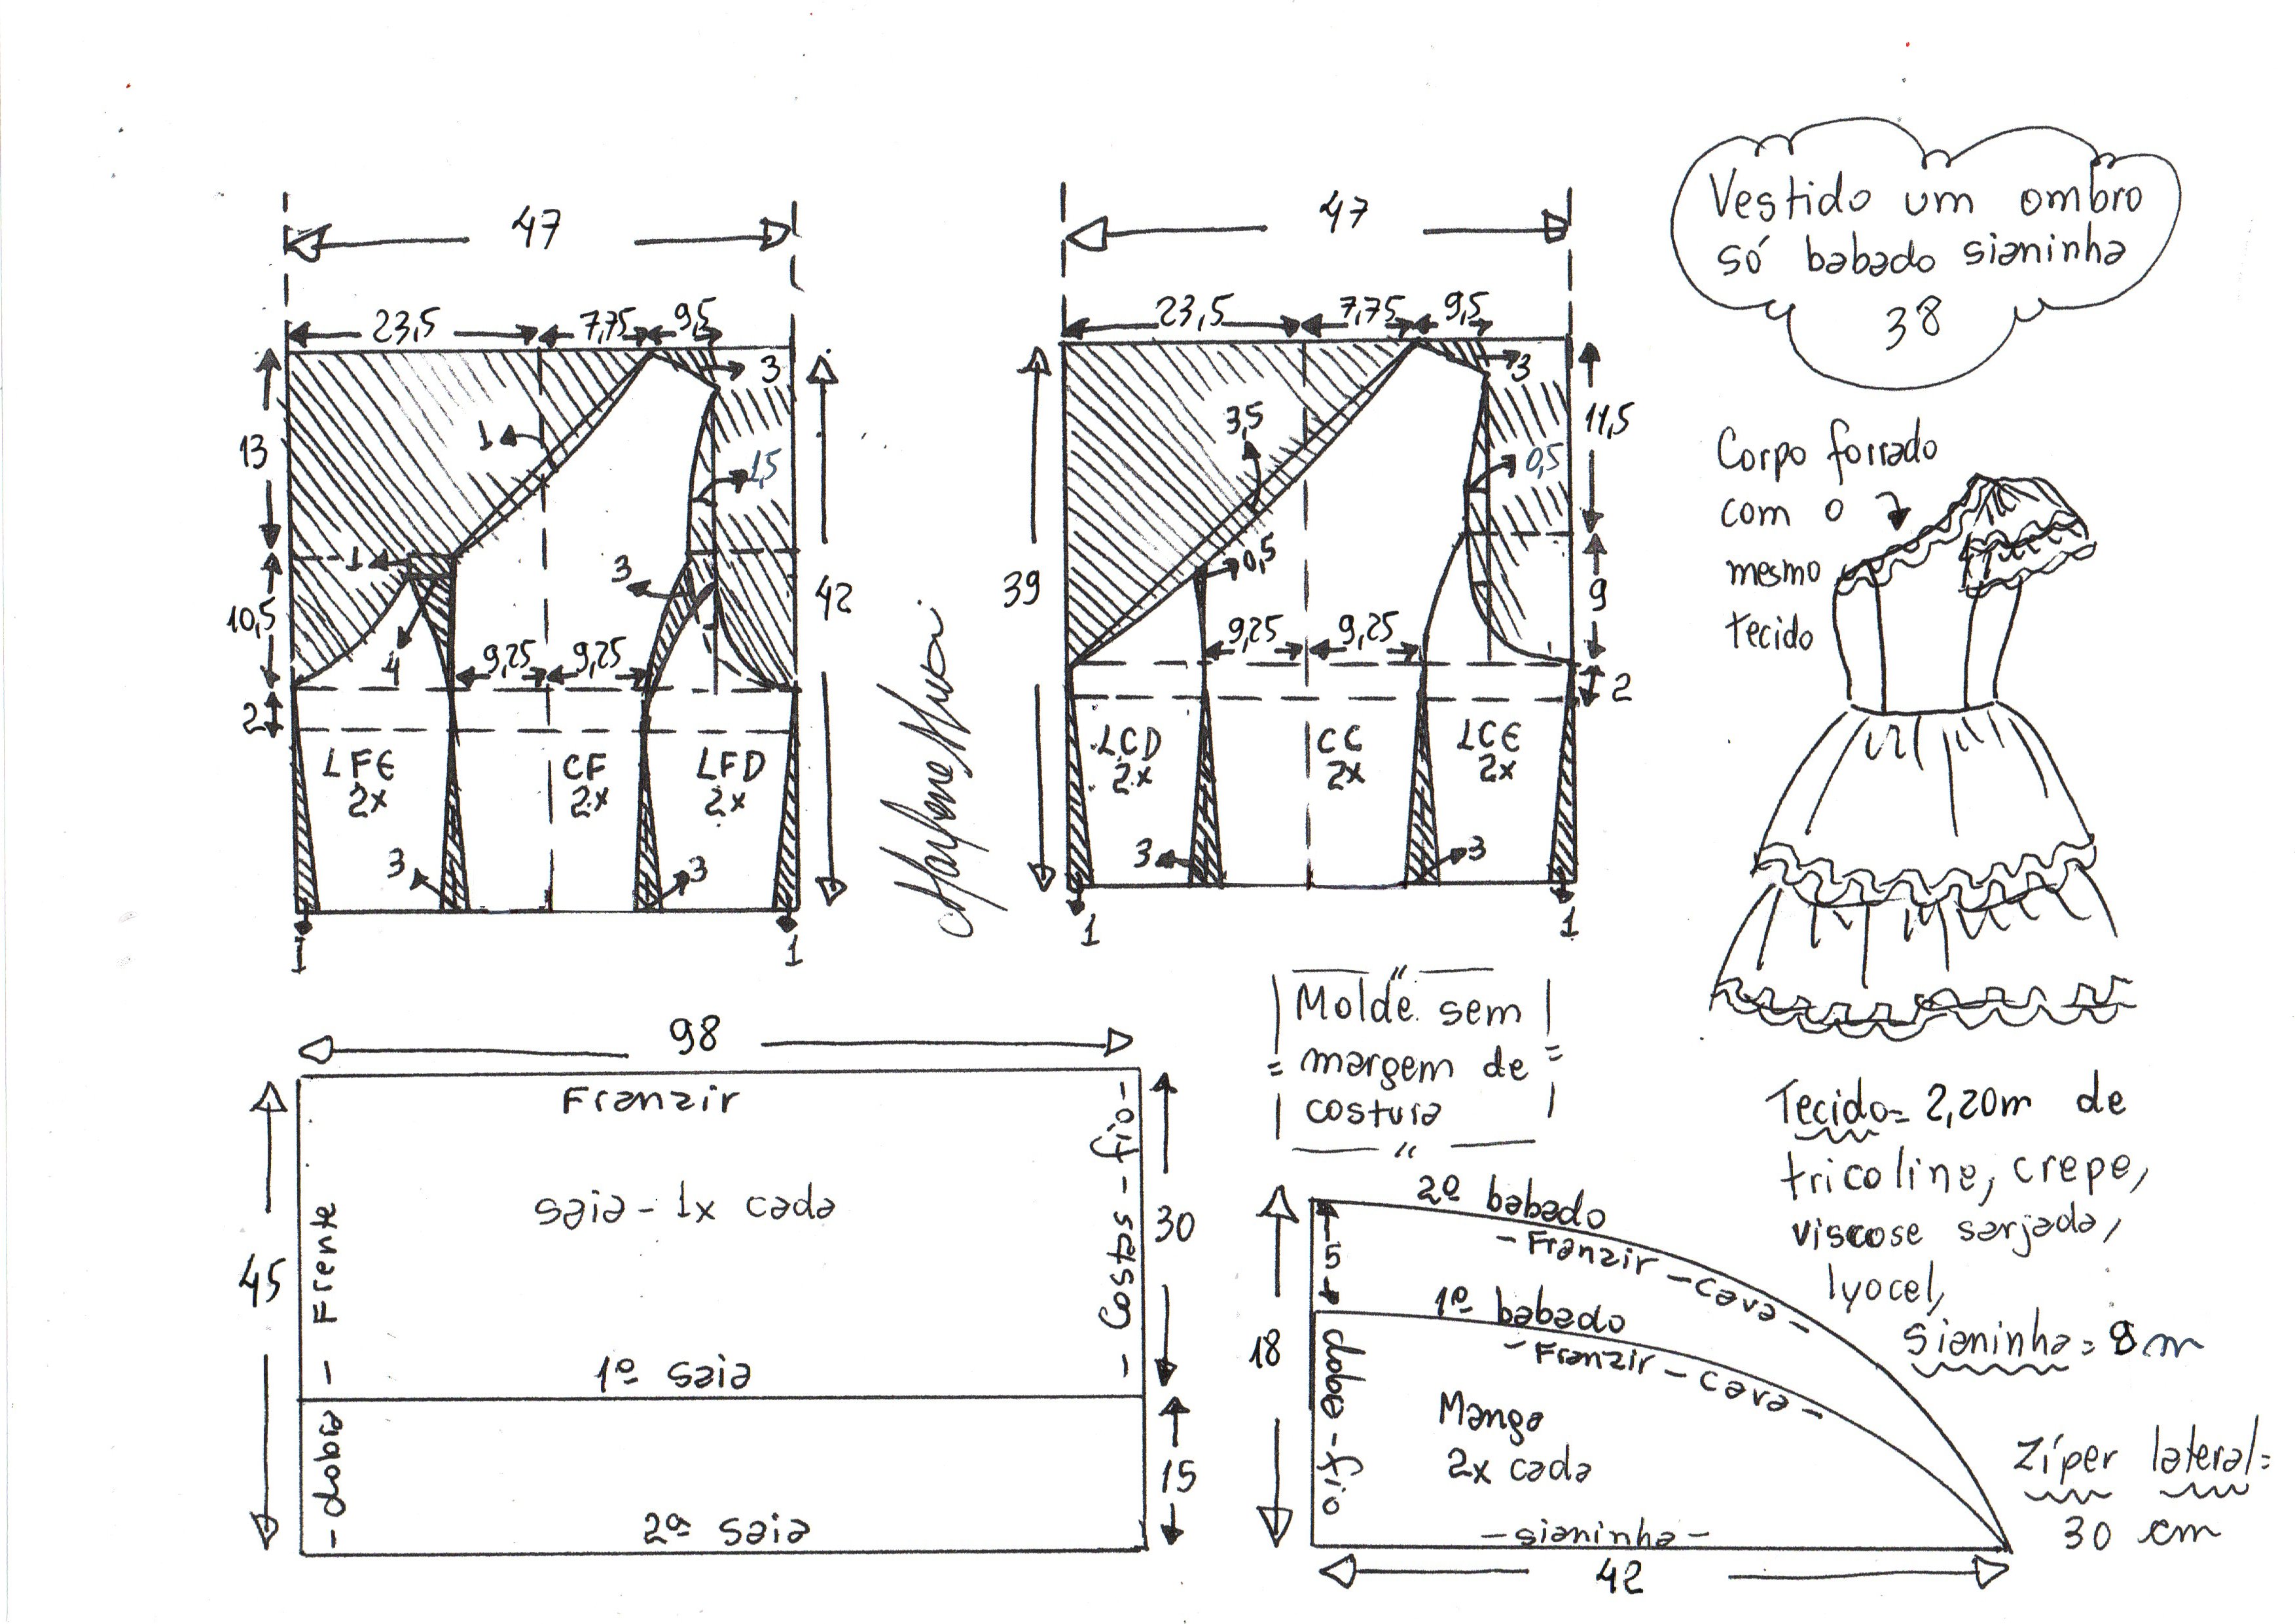 47
23,5
7,75
9,5
3
13
1
1,5
1
3
10,5
4
9,25
9,25
42
2
LFE
2x
CF
2x
LFD
2x
3
3
1
1
47
23,5
7,75
9,5
3
3,5
0,5
11,5
39
0,5
9,25
9,25
9
2
LCD
2x
CC
2x
LCE
2x
3
3
1
1
Vestido um ombro
só babado sianinha
38
Corpo forrado
com o
mesmo
tecido
98
Franzir
saia - 1x cada
45
- dobra - Frente
- Costas - fio -
30
1ª saia
15
2ª saia
Molde sem
margem de
costura
Tecido = 2,20m de
tricoline, crepe,
viscose sarjada,
lyocel,
sianinha = 8m
Zíper lateral =
30 cm
2º babado
- Franzir - cava -
5
1º babado
- Franzir - cava -
18
dobra - fio
Manga
2x cada
- sianinha -
42